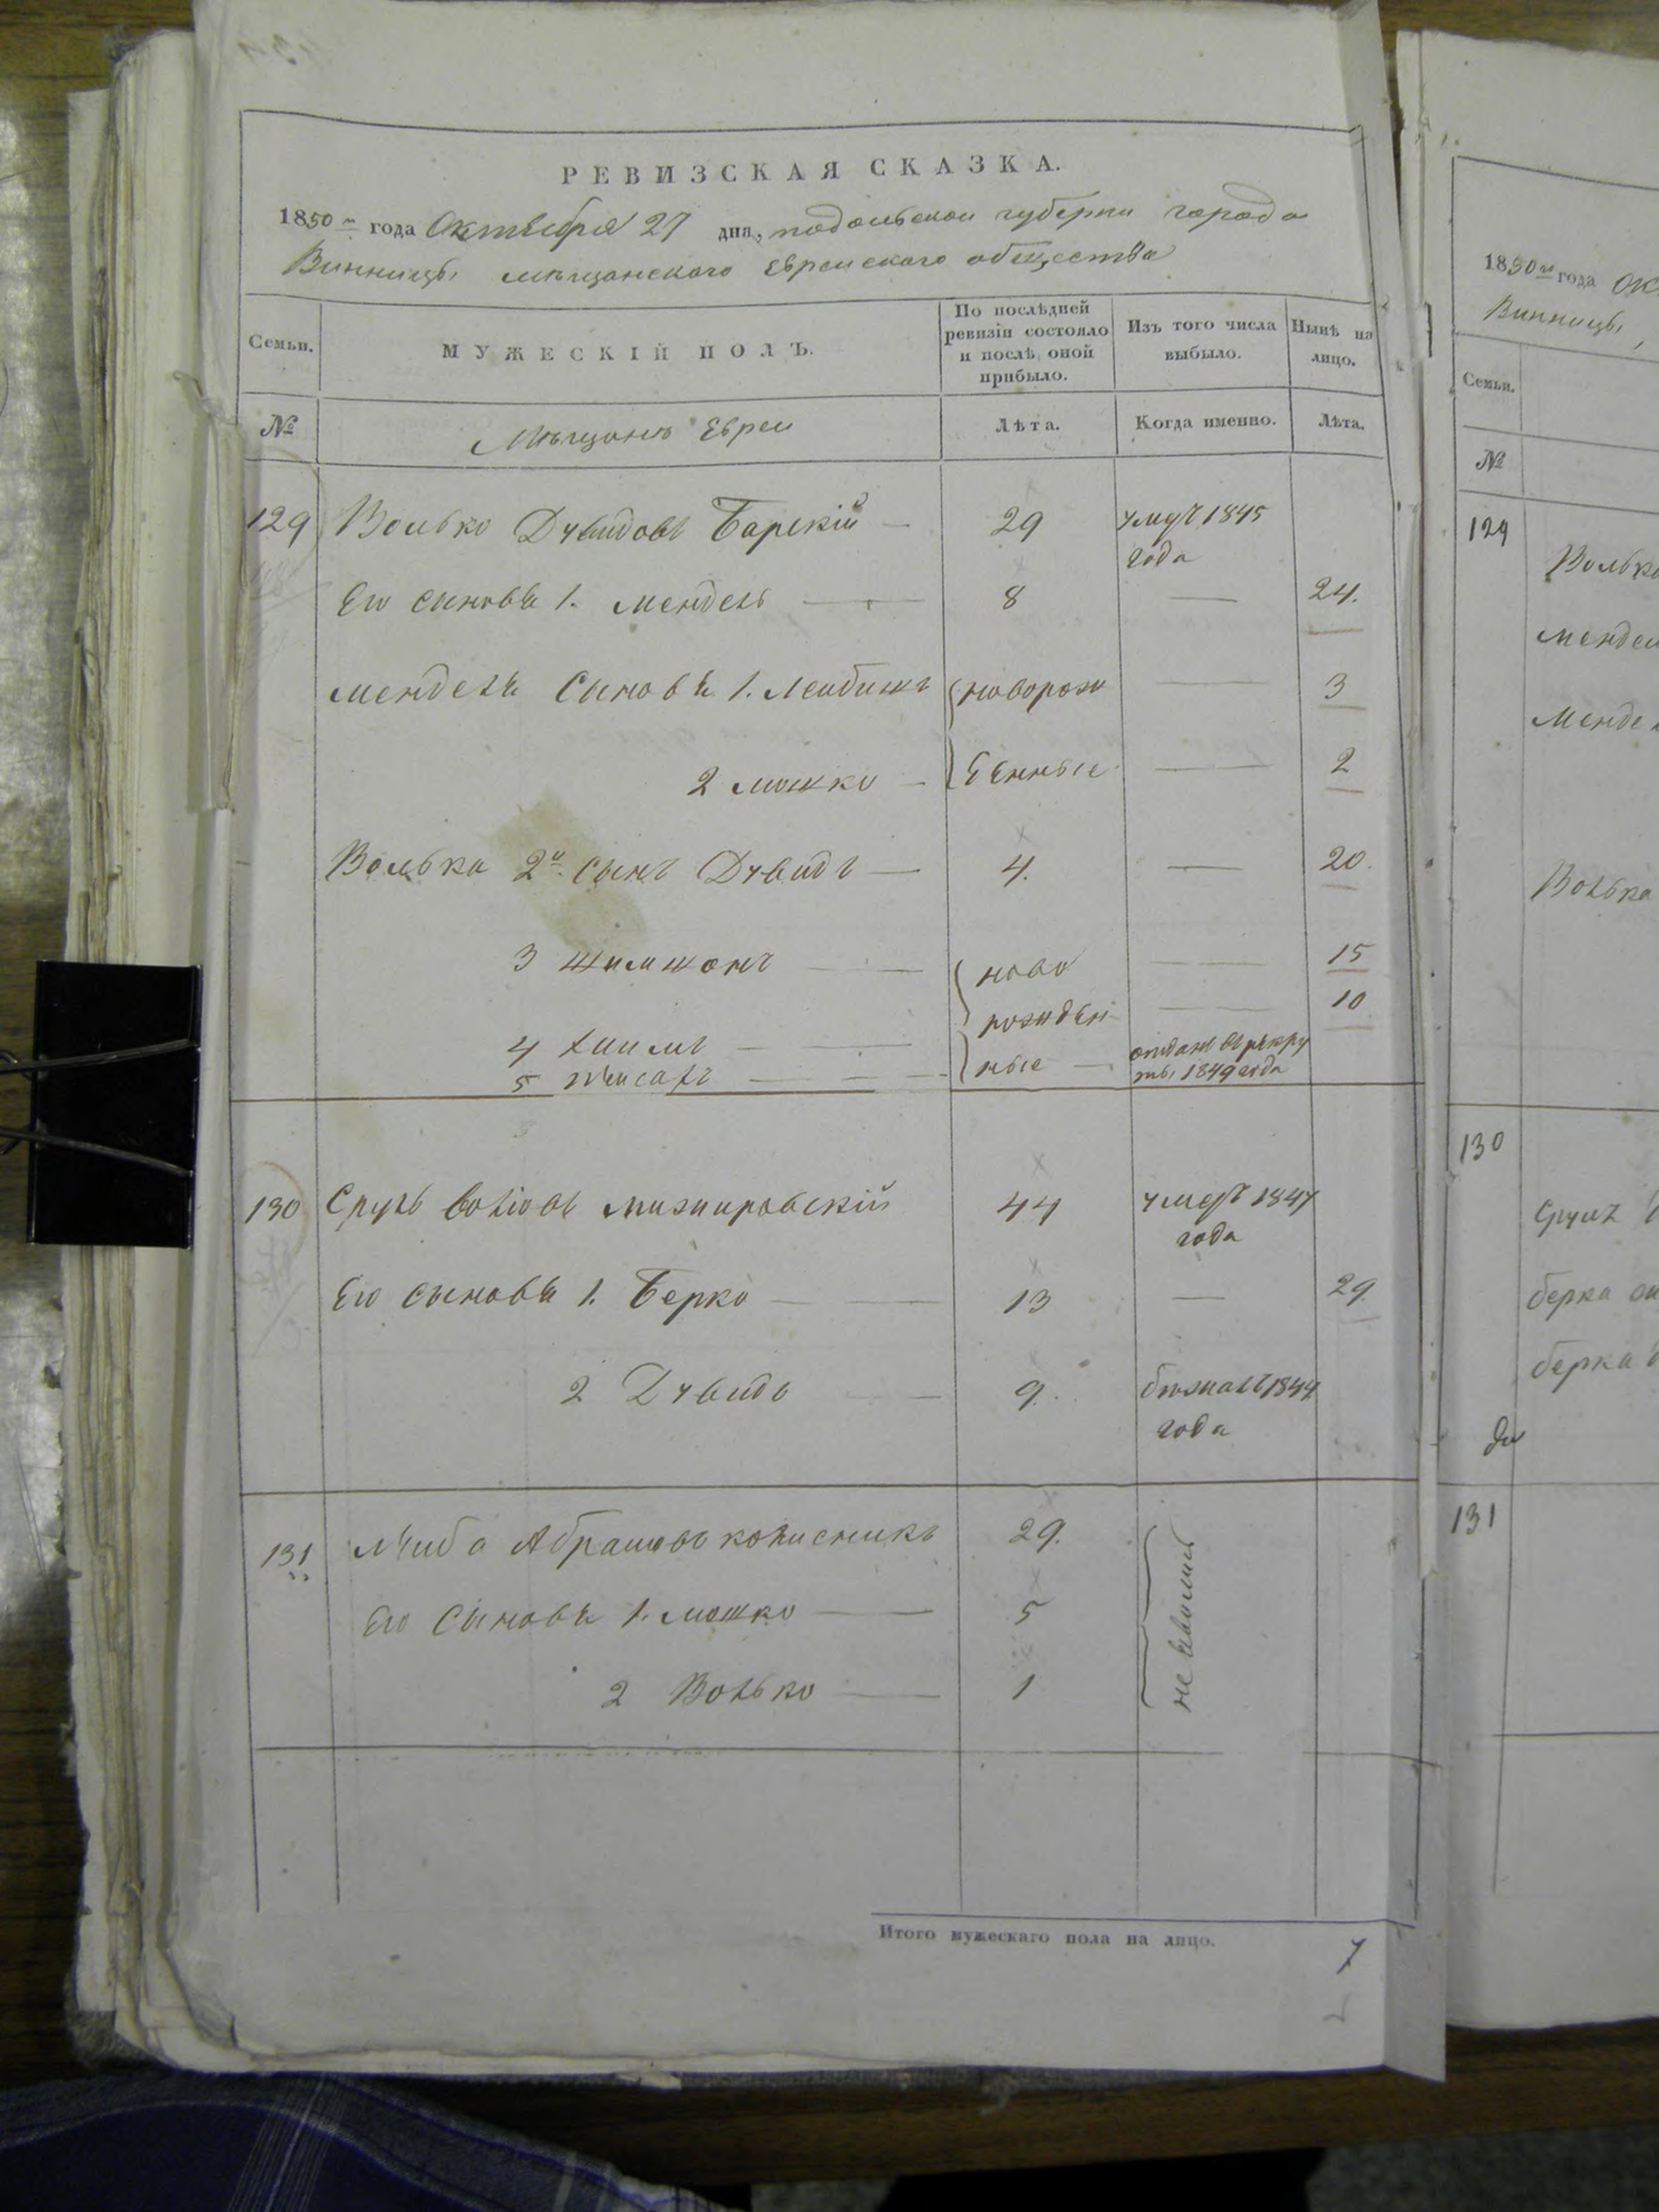 РЕВИЗСКАЯ СКАЗКА.
1850 го года Октября 27 дня, подольской губерни города
Винницы мѣщанского Еврейского общества
Семьи. МУЖЕСКІЙ ПОЛЪ. По послѣдней ревизіи состояло и послѣ оной прибыло. Изъ того числа выбыло. Нынѣ на лицо.
№ Мѣщанъ Евреи Лѣта. Когда именно. Лѣта.
129 Волько Дувидовъ Барскій — 29 умеръ 1845 года
Его сыновья 1. Мендель — 8 — 24.
Менделя Сыновья 1. Лейбишъ новорож — 3
2 мошко — денные — 2
Волька 2й сынъ Дувидъ — 4. — 20.
3 Шимшонъ — ново — 15
рожден — 10
4 Хаимъ —
5 — ные — отданъ въ рекру
ты 1849 года
130 Сруль мижировскій 44 умеръ 1847
года
Его сыновья 1. Берко — 13 — 29.
2 Дувидъ — 9. бѣжалъ 1844
года
131 Абрамовъ 29.
Его Сыновья 1. мошко — 5
2 Волько — 1
не
Итого мужескаго пола на лицо. 7
1850 го года Ок
Винницы,
Семьи.
№
129
Волька
Мендел
Менде
Волька
130
Сруля
берка
берка
131